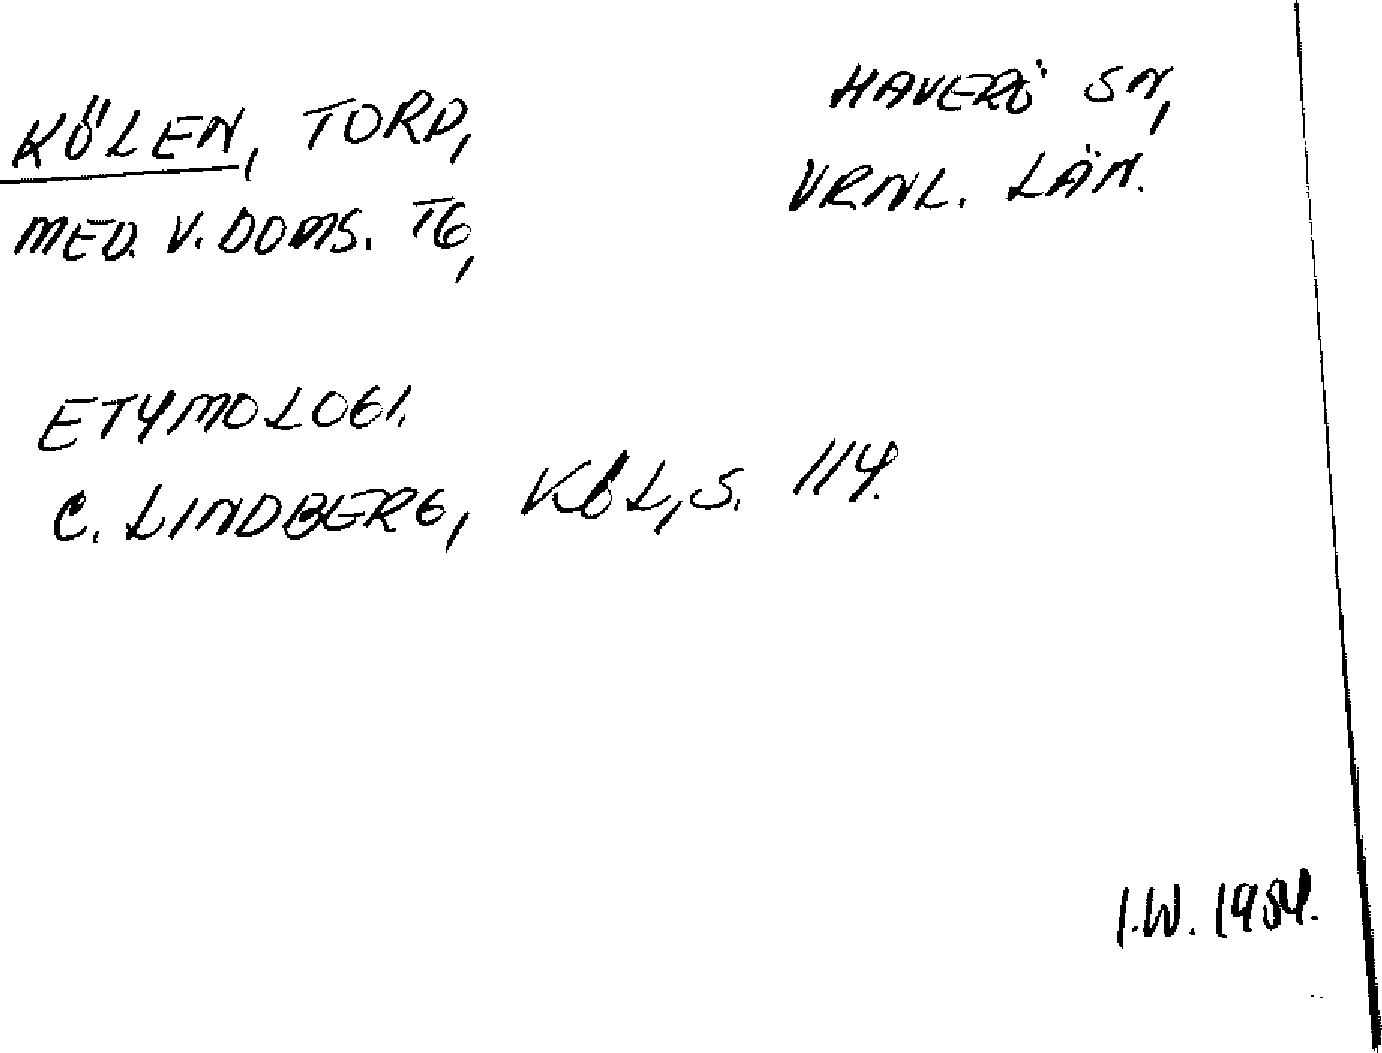 KÖLEN, TORP,
MED. V. DOMS. TG,
HAVERÖ SN,
VRNL. LÄN.
ETYMOLOGI.
C. LINDBERG, KÖL, S. 114.
I.W. 1984.